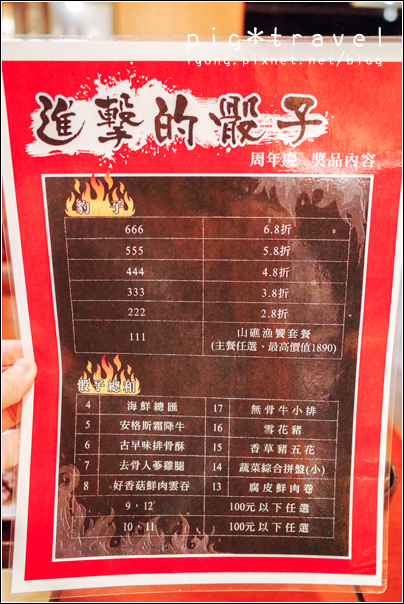 pig*travel
igong.pixnet.net/blog
進擊的骰子
周年慶 獎品內容
豹子
666 6.8折
555 5.8折
444 4.8折
333 3.8折
222 2.8折
111 山礁漁饗套餐
(主餐任選、最高價值1890)
骰子總和
4 海鮮總匯 17 無骨牛小排
5 安格斯霜降牛 16 雪花豬
6 古早味排骨酥 15 香草豬五花
7 去骨人蔘雞腿 14 蔬菜綜合拼盤(小)
8 好香菇鮮肉雲吞 13 腐皮鮮肉卷
9，12 100元以下任選
10，11 100元以下任選